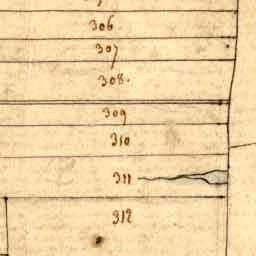 306.
307
308.
309
310
311
312